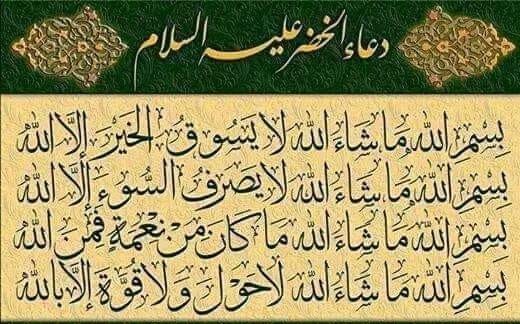 دعاء الخضر عليه السلام
بِسْمِ اللهِ مَا شَاءَ اللهُ لَا يَسُوقُ الخَيْرَ إِلَّا اللهُ
بِسْمِ اللهِ مَا شَاءَ اللهُ لَا يَصْرِفُ السُّوءَ إِلَّا اللهُ
بِسْمِ اللهِ مَا شَاءَ اللهُ مَا كَانَ مِنْ نِعْمَةٍ فَمِنَ اللهِ
بِسْمِ اللهِ مَا شَاءَ اللهُ لَا حَوْلَ وَلَا قُوَّةَ إِلَّا بِاللهِ